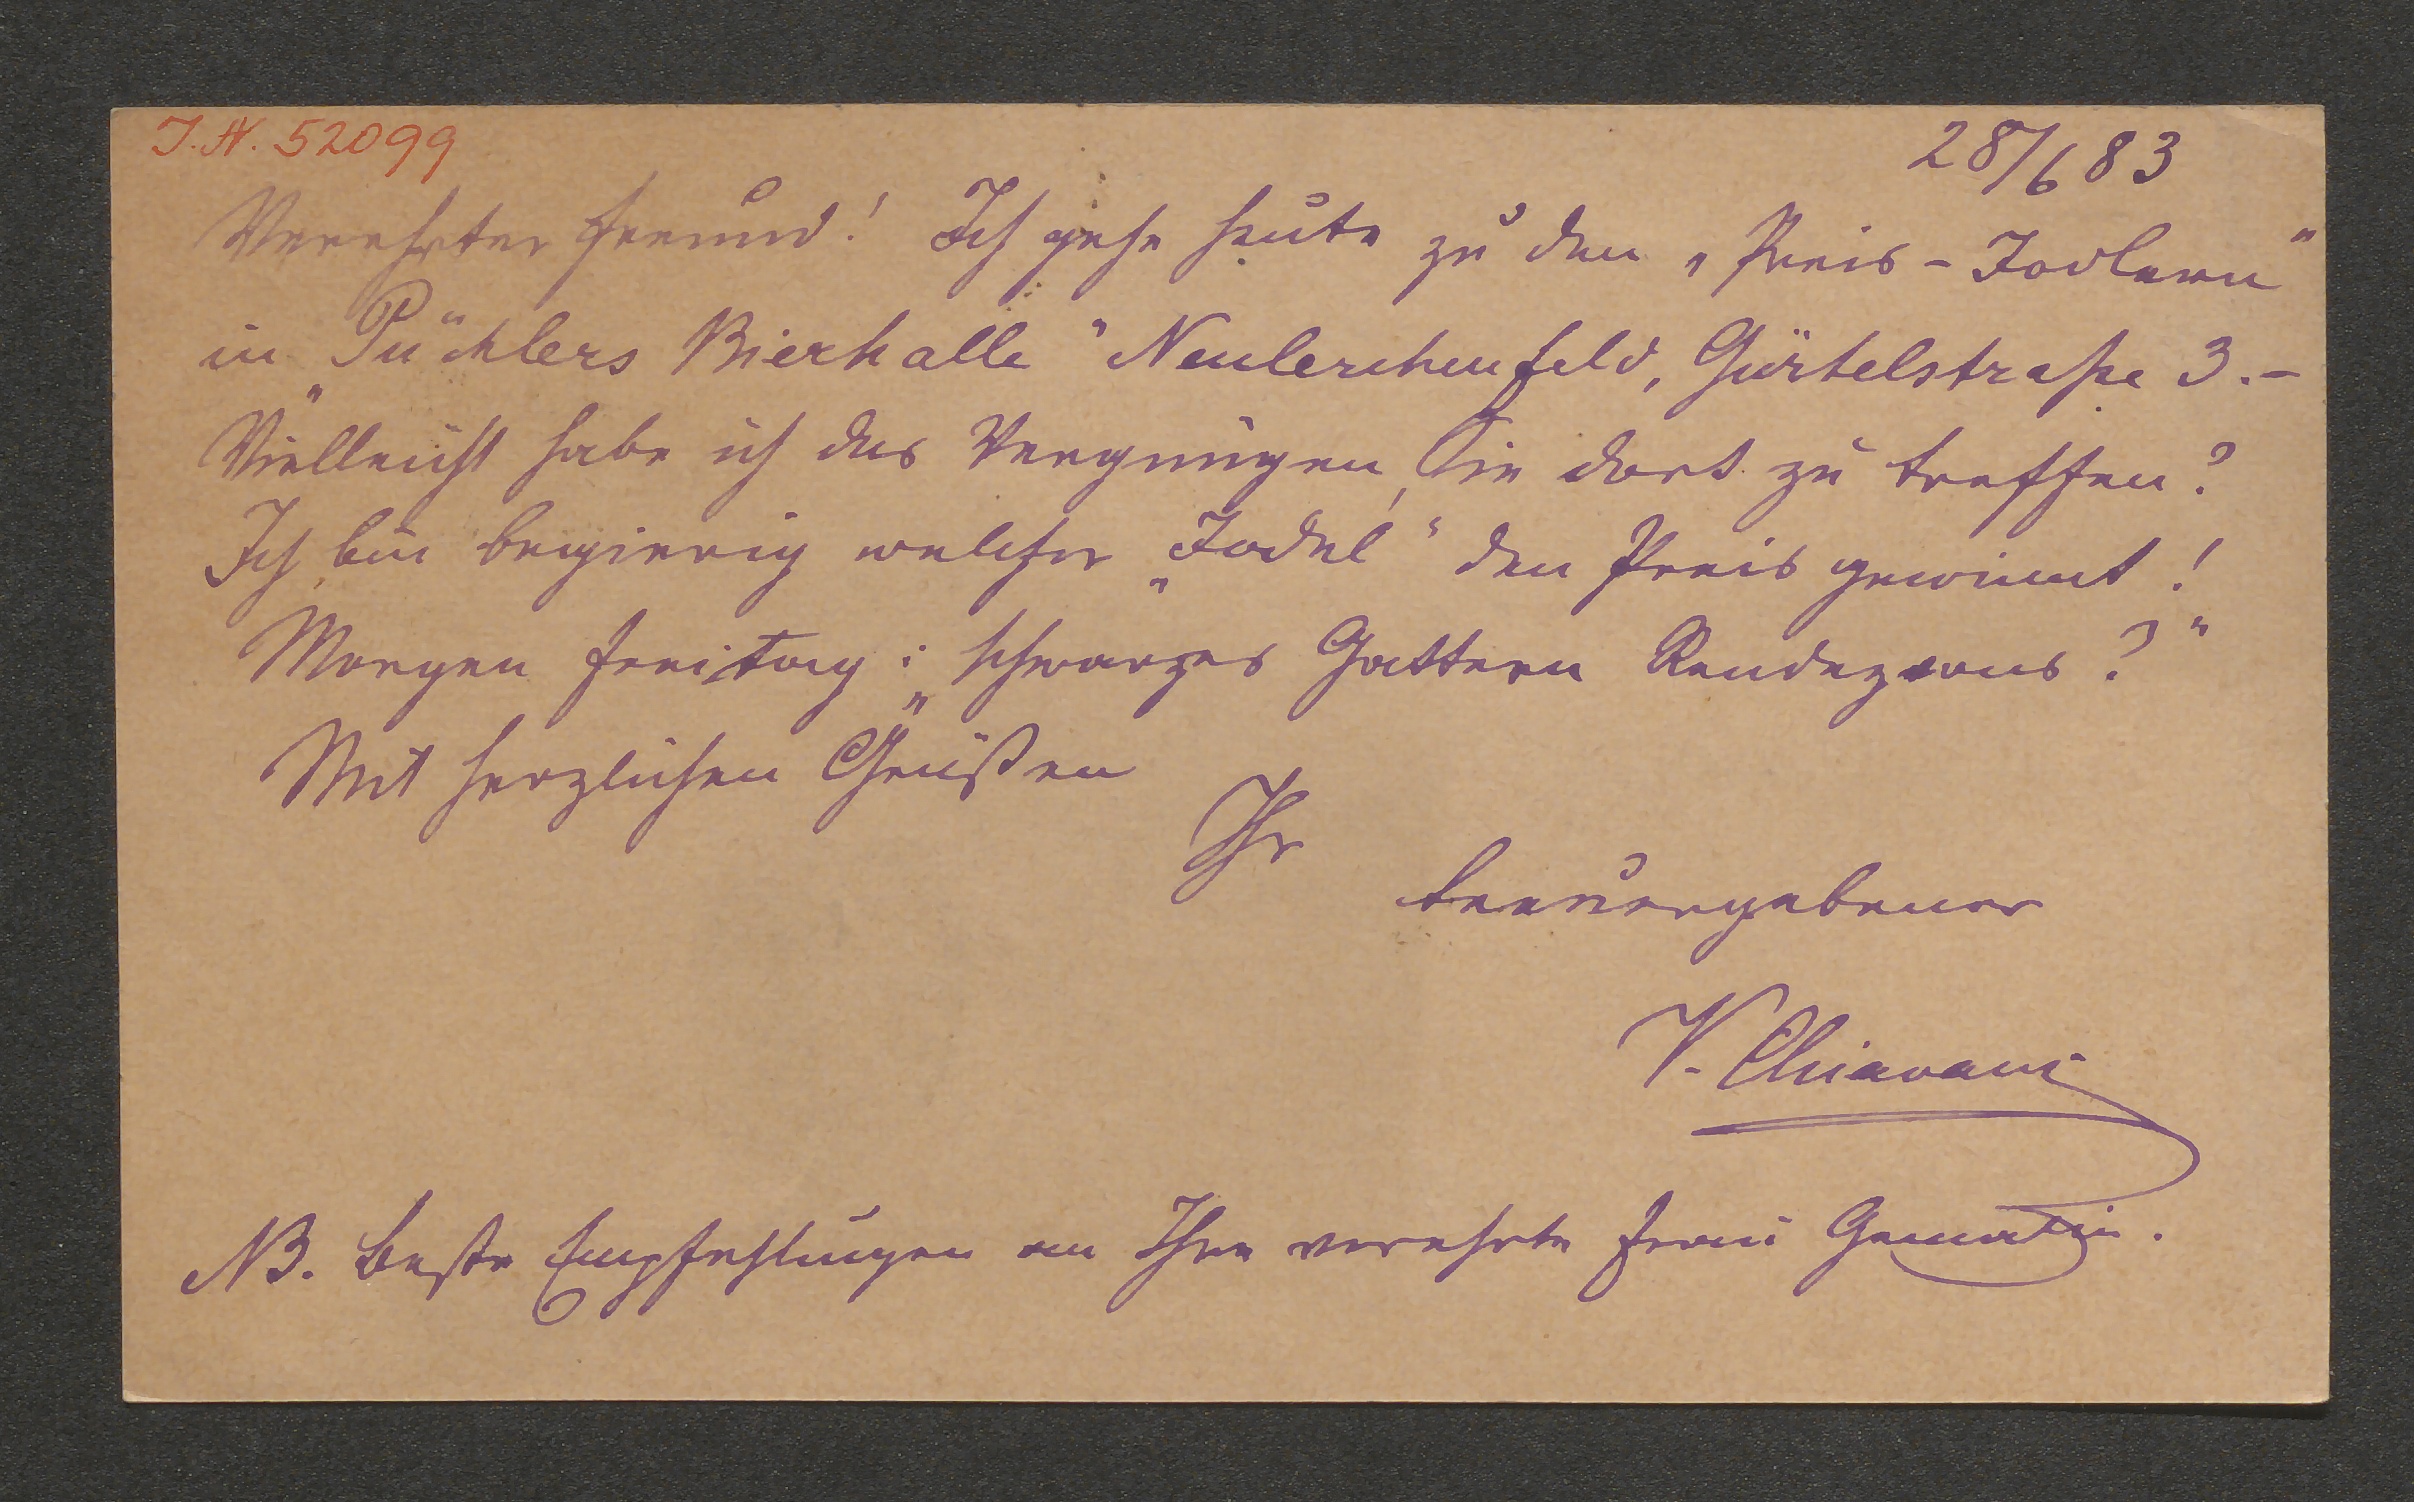 J.N. 52099
28/6 83
Verehrter Freund! Ich gehe heute zu den „Preis-Jodlern“
in „Püchlers Bierhalle“ Neulerchenfeld, Gürtelstraße 3.–
Vielleicht habe ich das Vergnügen, Sie dort zu treffen?
Ich bin begierig welcher „Jodel“ den Preis gewinnt!
Morgen Freitag: „schwarzes Gattern Rendezvous?“
Mit herzlichen Grüßen
Ihr
treuergebener
V. Chiavacci
NB. Beste Empfehlungen an Ihre verehrte Frau Gemalin.